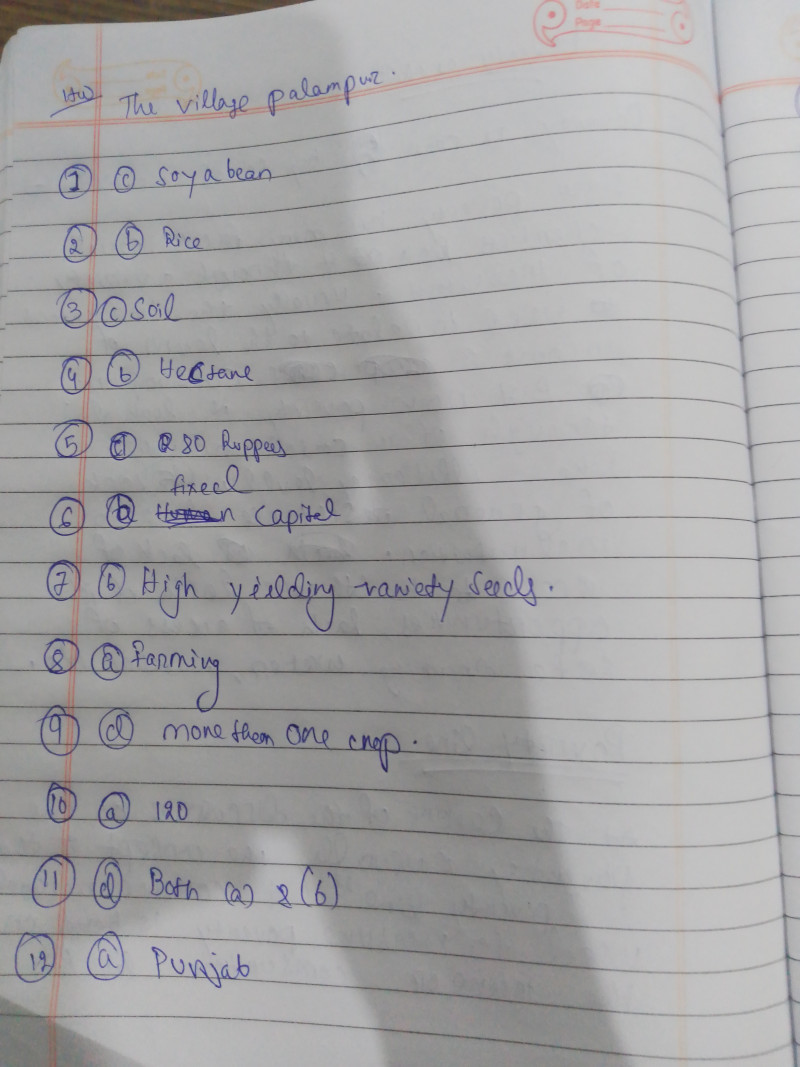 Date
Page
HW The village palampur.
① ⓒ Soyabean
② ⓑ Rice
③ ⓒ Soil
④ ⓑ Hectare
⑤ ⓓ 280 Ruppees
fixed
⑥ capital
⑦ ⓑ High yielding variety seeds.
⑧ ⓐ farming
⑨ ⓓ more than one crop.
⑩ ⓐ 120
⑪ ⓓ Both (a) & (b)
⑫ ⓐ Punjab